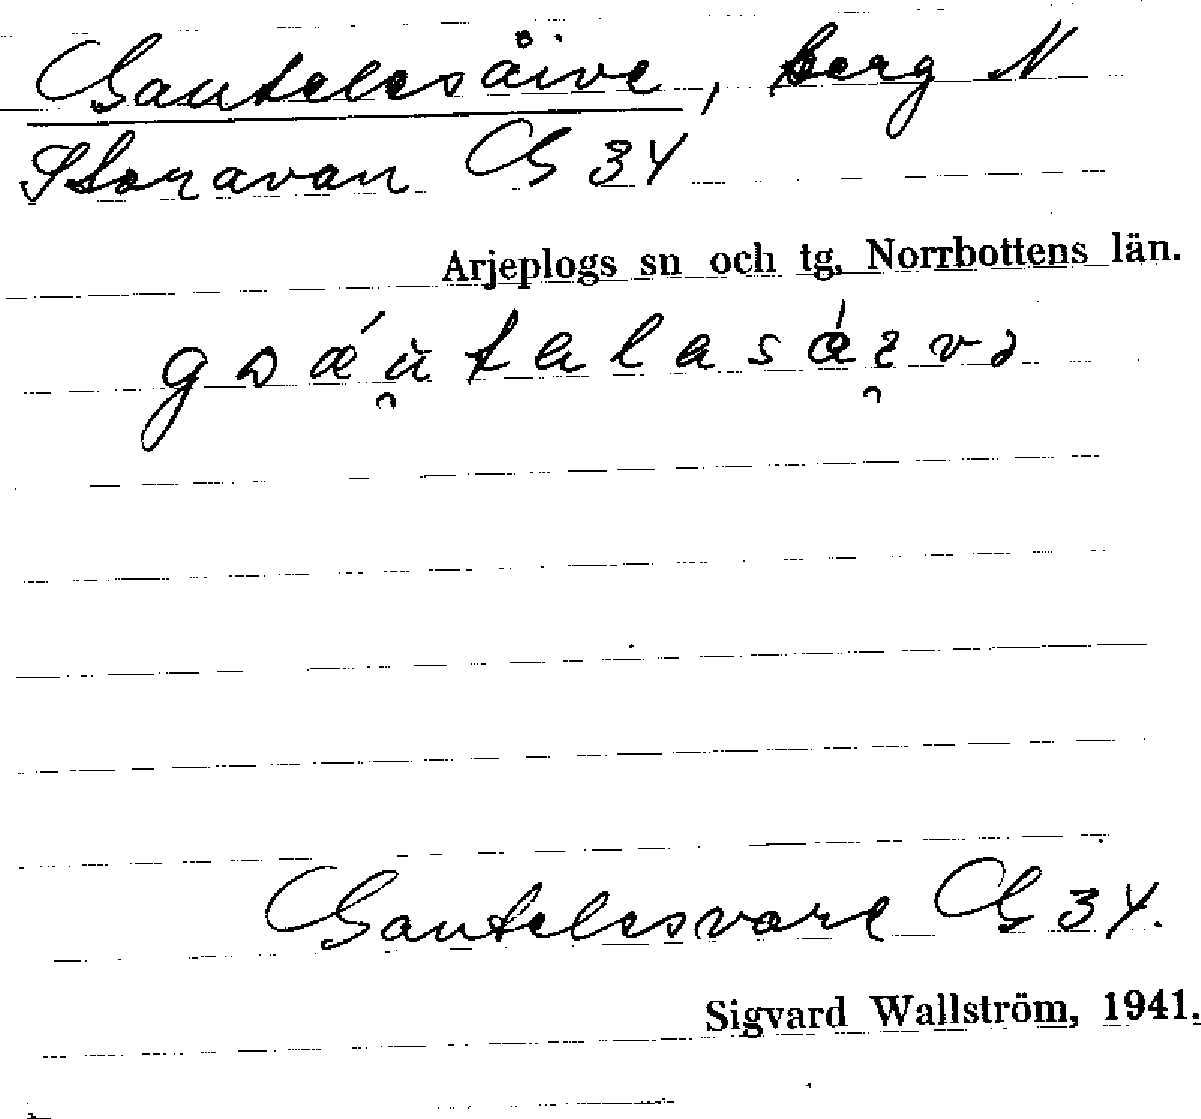 Gautelesäive, berg N
Storavan G 34
Arjeplogs sn och tg, Norrbottens län.
Gautelesvare G 34.
Sigvard Wallström, 1941.